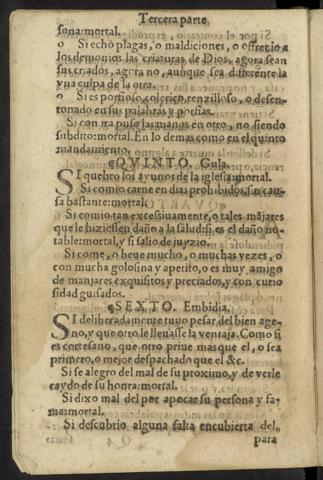 Tercera parte
sona:mortal.
o Si echò plagas, o maldiciones, o offrecio a
los demonios las criaturas de Dios, agora sean
sus criados, agora no, aunque sea differente la
vna culpa de la otra.
o Si es porfioso, colerico, renzilloso, o desen-
tonado en sus palabras y porfias.
Si con ira puso las manos en otro, no siendo
subdito:mortal. En lo demas como en el quinto
mandamiento.
¶QVINTO. Gula.
SI quebro los ayunos de la iglesia:mortal.
Si comio carne en dias prohibidos, sin cau-
sa bastante:mortal.
Si comio tan excessiuamente, o tales mãjares
que le hiziessen daño a la salud:si es el daño no-
table:mortal, y si salio de juyzio.
Si come, o beue mucho, o muchas vezes, o
con mucha golosina y apetito, o es muy amigo
de manjares exquisitos y preciados, y con curio
sidad guisados.
¶SEXTO. Embidia.
SI deliberadamente tuuo pesar del bien age-
no, y que otro le lleuasse la ventaja. Como si
es cortesano, que otro priue mas que el, o sea
primero, o mejor despachado que el &c.
Si se alegro del mal de su proximo, y de verle
caydo de su honra:mortal.
Si dixo mal del por apocar su persona y fa-
ma:mortal.
Si descubrio alguna falta encubierta del,
para